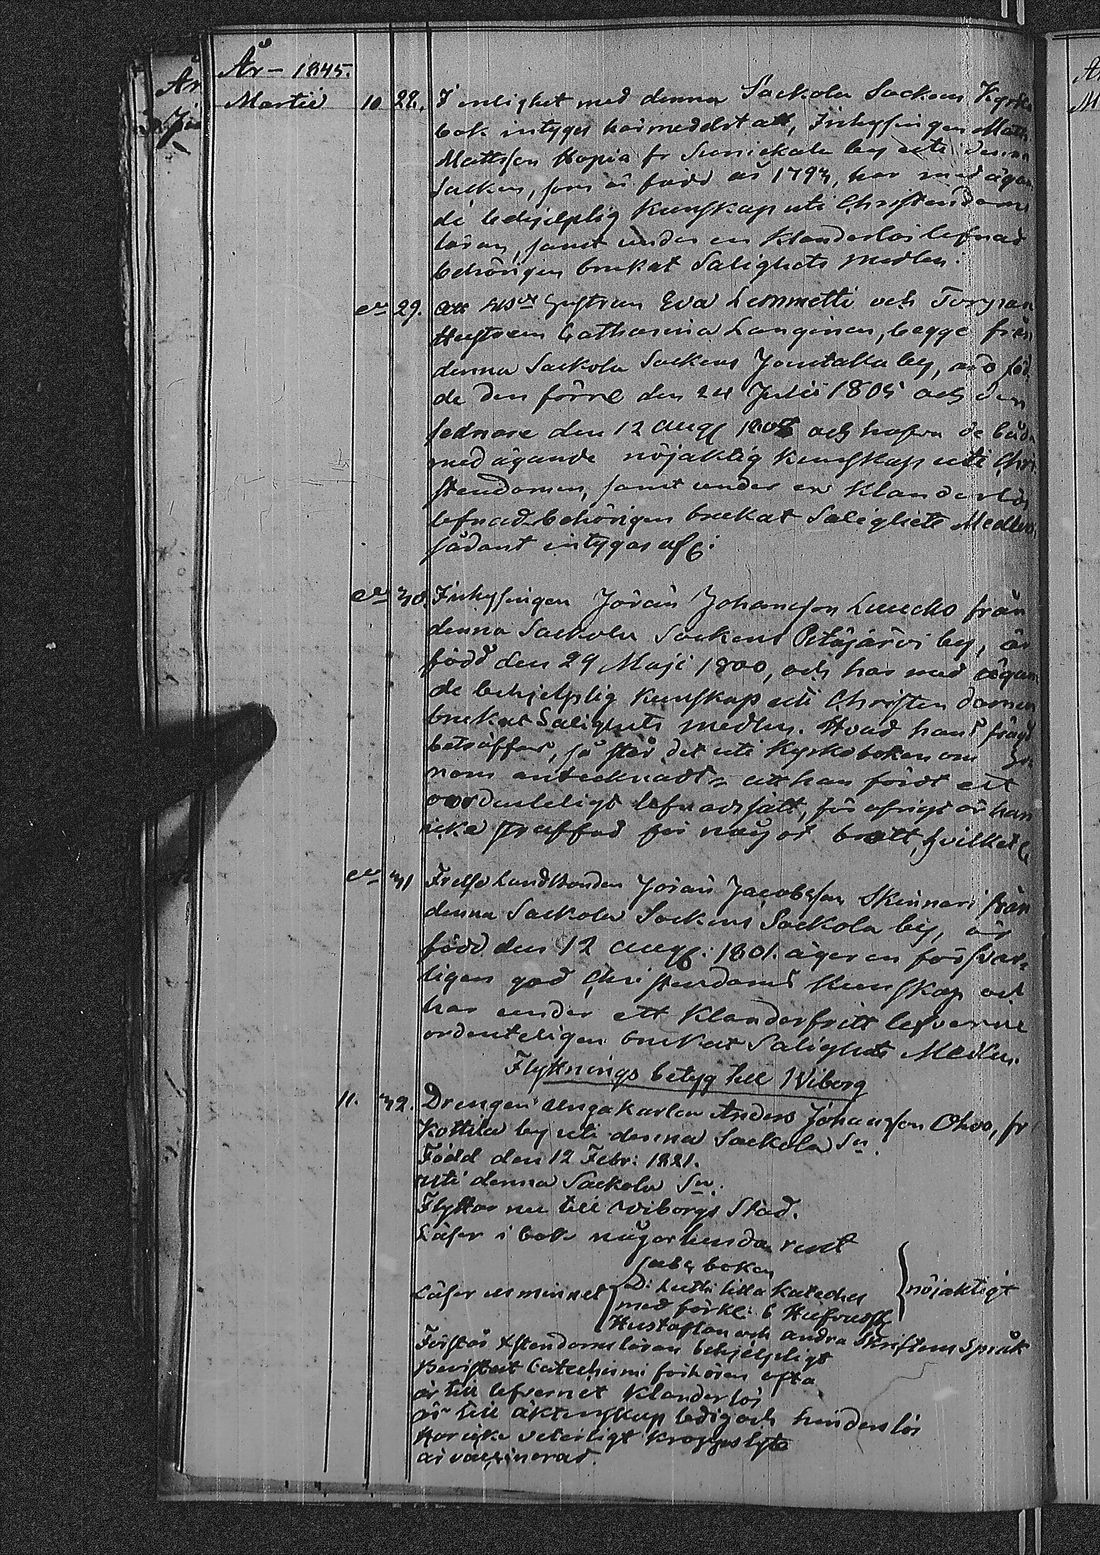 År 1845.
Martii 10 28. I enlighet med denna Sackola Sockens Kyrko
bok intygas härmedelst att, Inhysingen Matts
Mattsson Hopia fr Sunickala by uti denna
Socken, som är född år 1794, har med ägan
de behjelplig Kunskap uti Christendoms
läran, samt under en Klanderlös lefnad
behörigen brukat Salighets Medlen.
29. att Hustrun Eva Lemmetti och Torparе
Hustrun Catharina Langinen, begge från
denna Sackola Sockens Jouttaka by, äro föd
de den förre den 24 Julii 1805 och den
sednare den 12 Aug 1808 och hafva de båda
med ägande nöjaktig Kunskap uti Chri
stendomen, samt under en Klanderlös
lefnad behörigen brukat Salighets Medlen
sådant intygas af
30. Inhysingen Jöran Johansson Luucko från
denna Sackola Sockens Petäjärvi by, är
född den 29 Maji 1800, och har med ägan
de behjelplig Kunskap uti Christendomen
brukat Salighets medlen. Hvad hans frägd
beträffar, så står det uti Kyrkoboken om ho
nom antecknadt att han fördt ett
oordenteligt lefnadssätt, för öfrigt är han
icke straffad för något brott, hvilket
31 Frelse Landbonden Jöran Jacobsson Skinnari från
denna Sackola Sockens Sackola by, är
född den 12 Aug: 1801. äger en försvar-
ligen god Christendoms Kunskap och
har under ett Klanderfritt lefverne
ordenteligen brukat Salighets Medlen.
Flyttnings betyg till Wiborg
11. 32. Drengen Ungakarlen Anders Johansson Ohvo, fr
Kottila by uti denna Sackola Sn.
Född den 12 Febr: 1821.
uti denna Sackola Sn.
Flyttar nu till Wiborgs Stad.
Läser i bok någorlunda rent
abc boken
Läser ur minnet D: Luth: lilla Kateches nöjaktigt
med förkl:
Hustaflan och andra Skriftens Språk
Förstår Xstendomsläran behjelpligt
Bevistat Catechismi förhören ofta
är till lefvernet Klanderlös
är till äktenskap ledig och hinderslös
Har icke veterligt Kroppslyte
är vaccinerad.